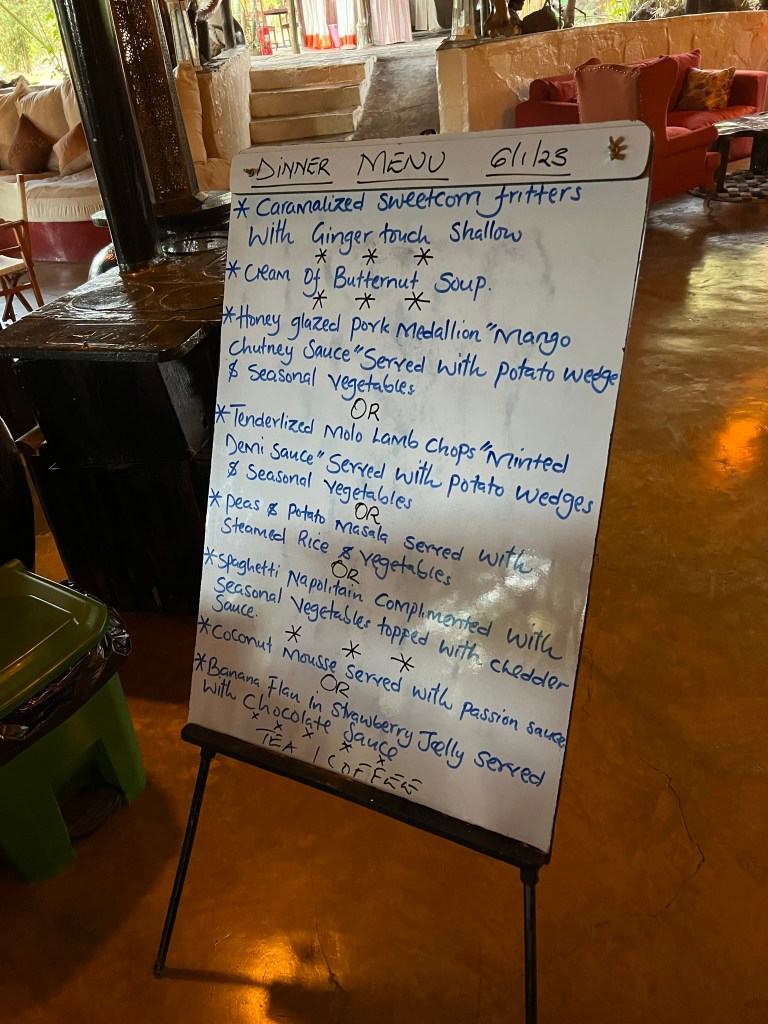 DINNER MENU 6/1/23
* Caramalized sweetcorn fritters
with Ginger touch Shallow
* * *
* Cream Of Butternut Soup.
* * *
* Honey glazed pork Medallion "Mango
Chutney Sauce" Served with potato wedge
& Seasonal vegetables
OR
* Tenderlized Molo Lamb Chops "Minted
Demi Sauce" Served with potato wedges
& Seasonal vegetables
OR
* peas & potato Masala served with
Steamed Rice & vegetables
OR
* spaghetti Napolitain Complimented with
Seasonal Vegetables topped with chedder
Sauce.
* * *
* Coconut Mousse served with passion sauce
OR
* Banana Flan in strawberry Jelly served
with Chocolate Sauce
* * * * *
TEA / COFFEE